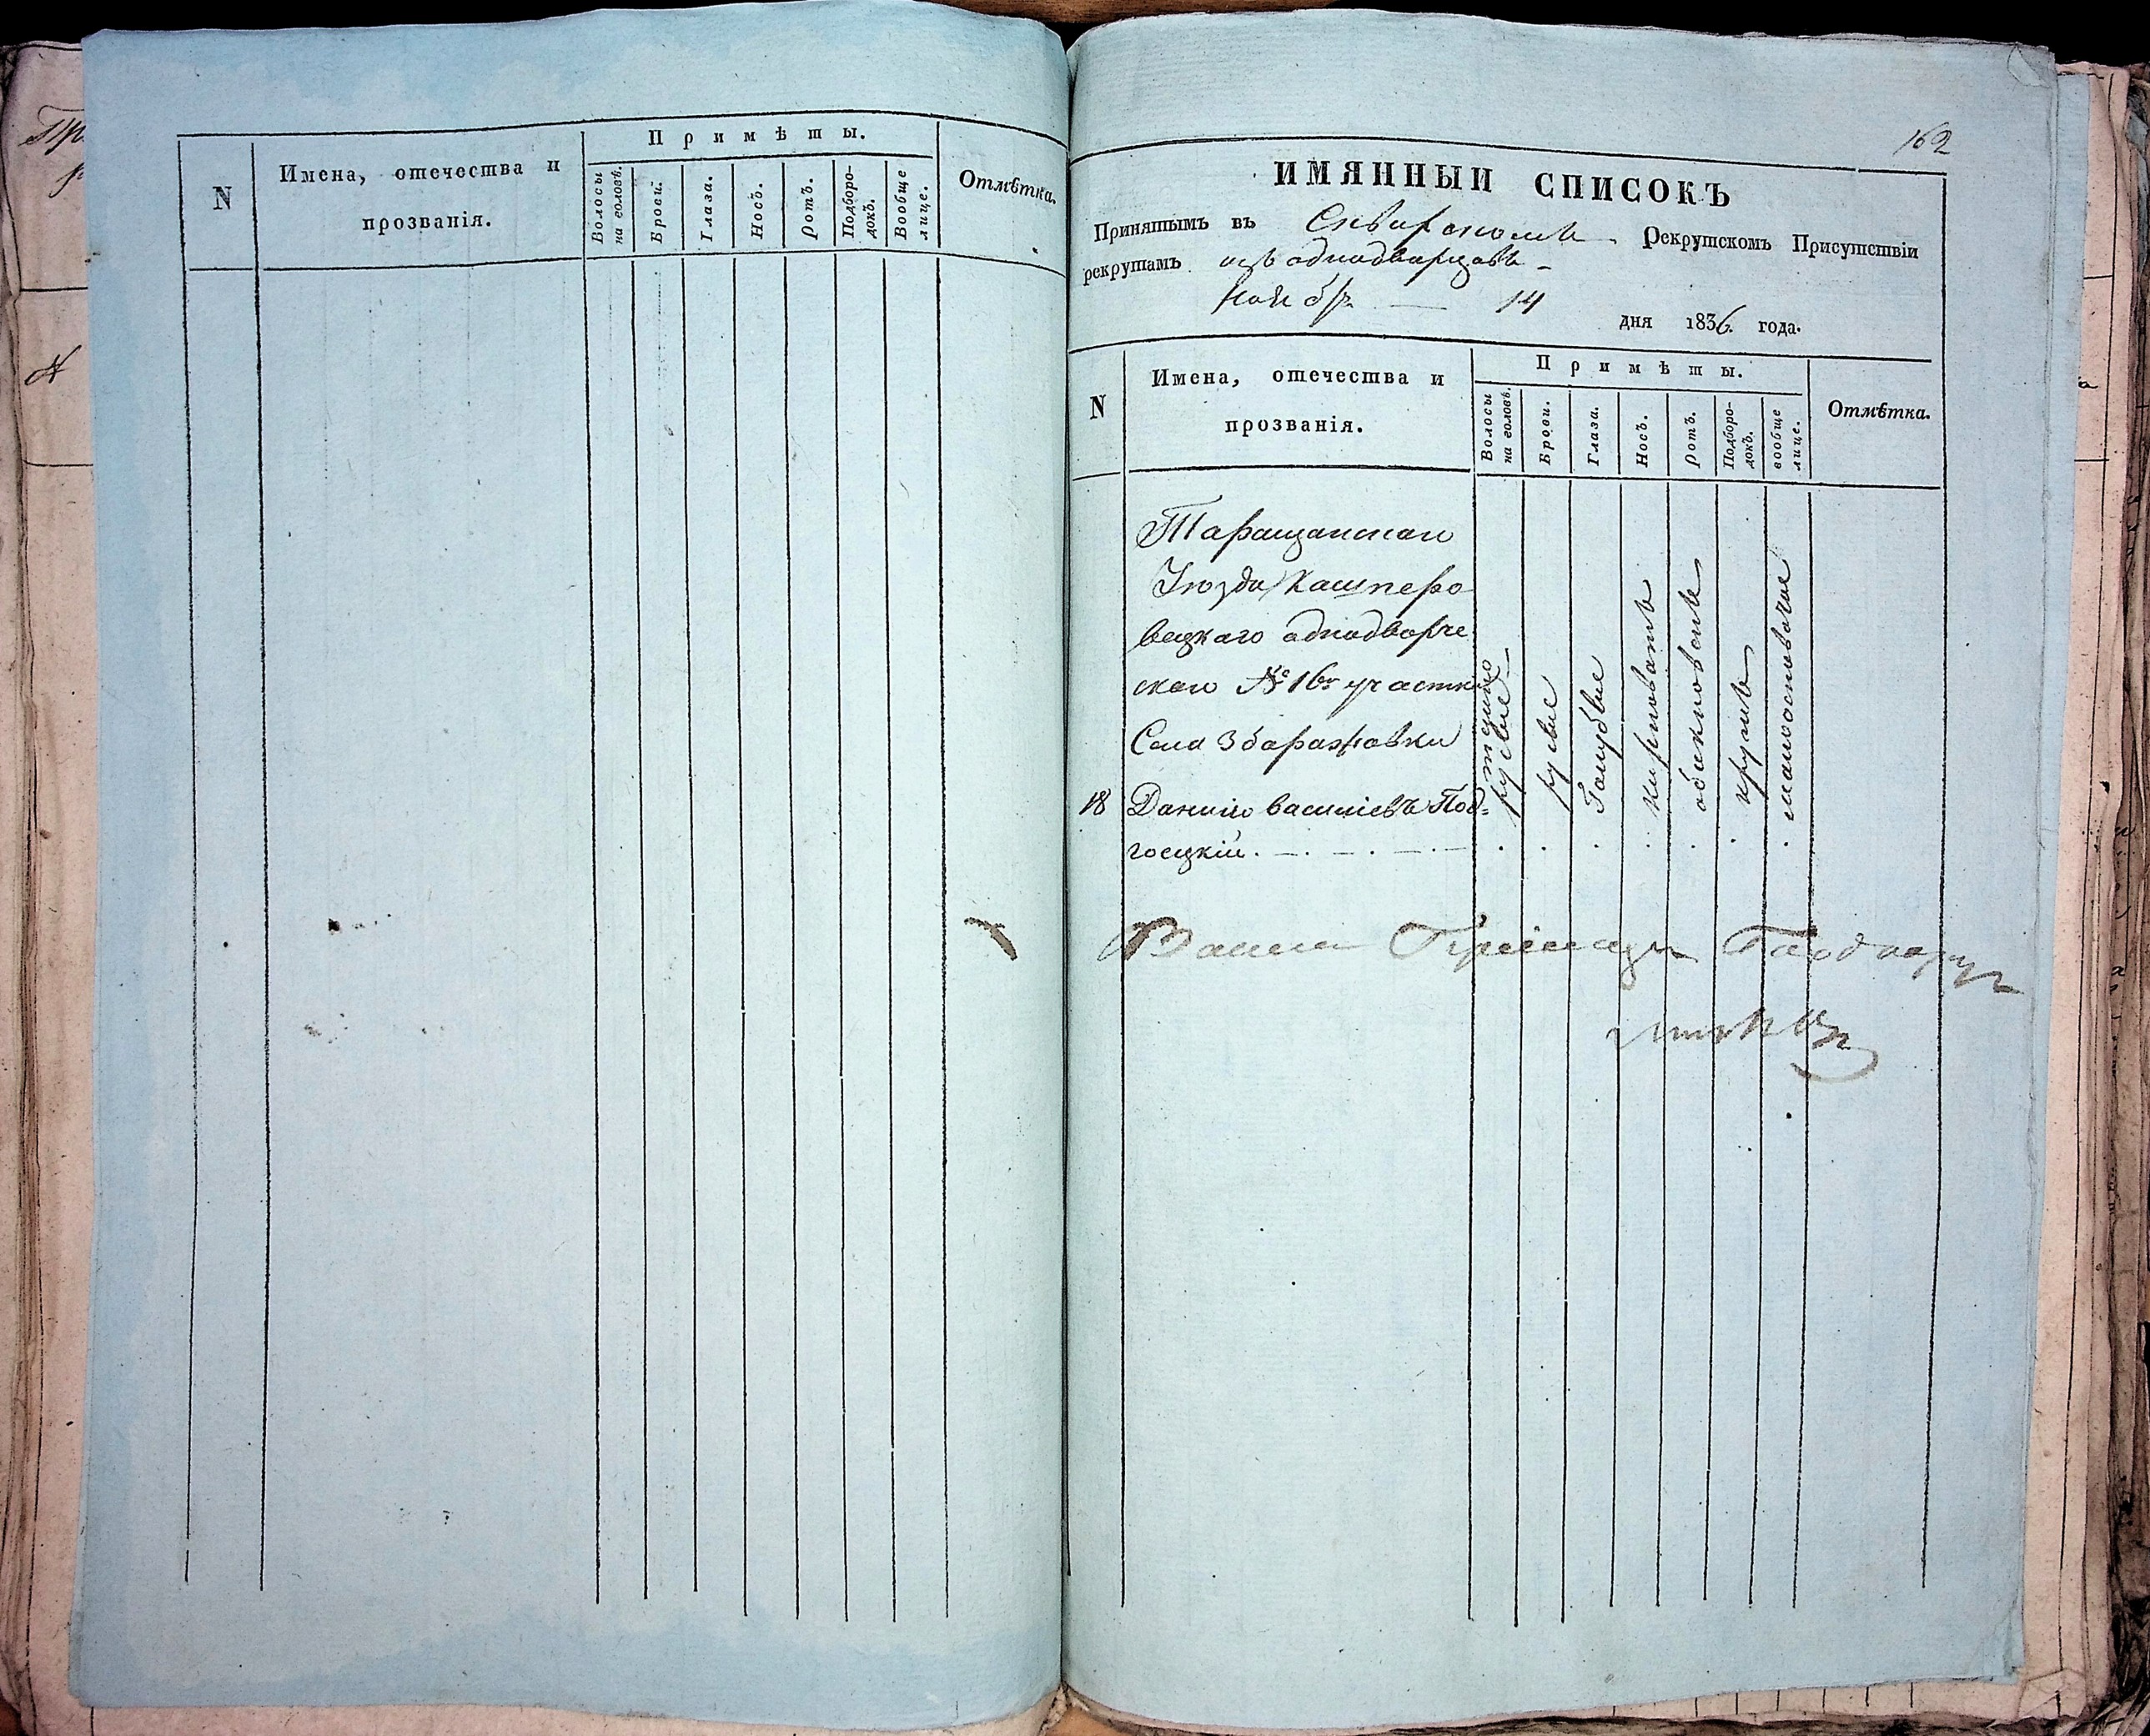 N
Имена, отечества и
прозванія.
Примѣты.
Волосы на головѣ.
Брови.
Глаза.
Носъ.
Ротъ.
Подборо-
докъ.
Вообще
лице.
Отмѣтка.
162
ИМЯННЫЙ СПИСОКЪ
Принятымъ въ Сквирскомъ Рекрутскомъ Присутствіи
рекрутамъ изъ однодворцовъ
Ноября 14
дня 1836. года.
N
Имена, отечества и
прозванія.
Примѣты.
Волосы
на головѣ.
Брови.
Глаза.
Носъ.
Ротъ.
Подборо-
докъ.
вообще
лице.
Отмѣтка.
Таращанскаго
Уѣзда Кашперо
вецкаго однодворче
скаго № 16го участка
Села Збаражовки
18 Данило васильевъ Под=
гоецкій.
русые
русые
Голубые
Кирповатъ
обикновенъ
круглъ